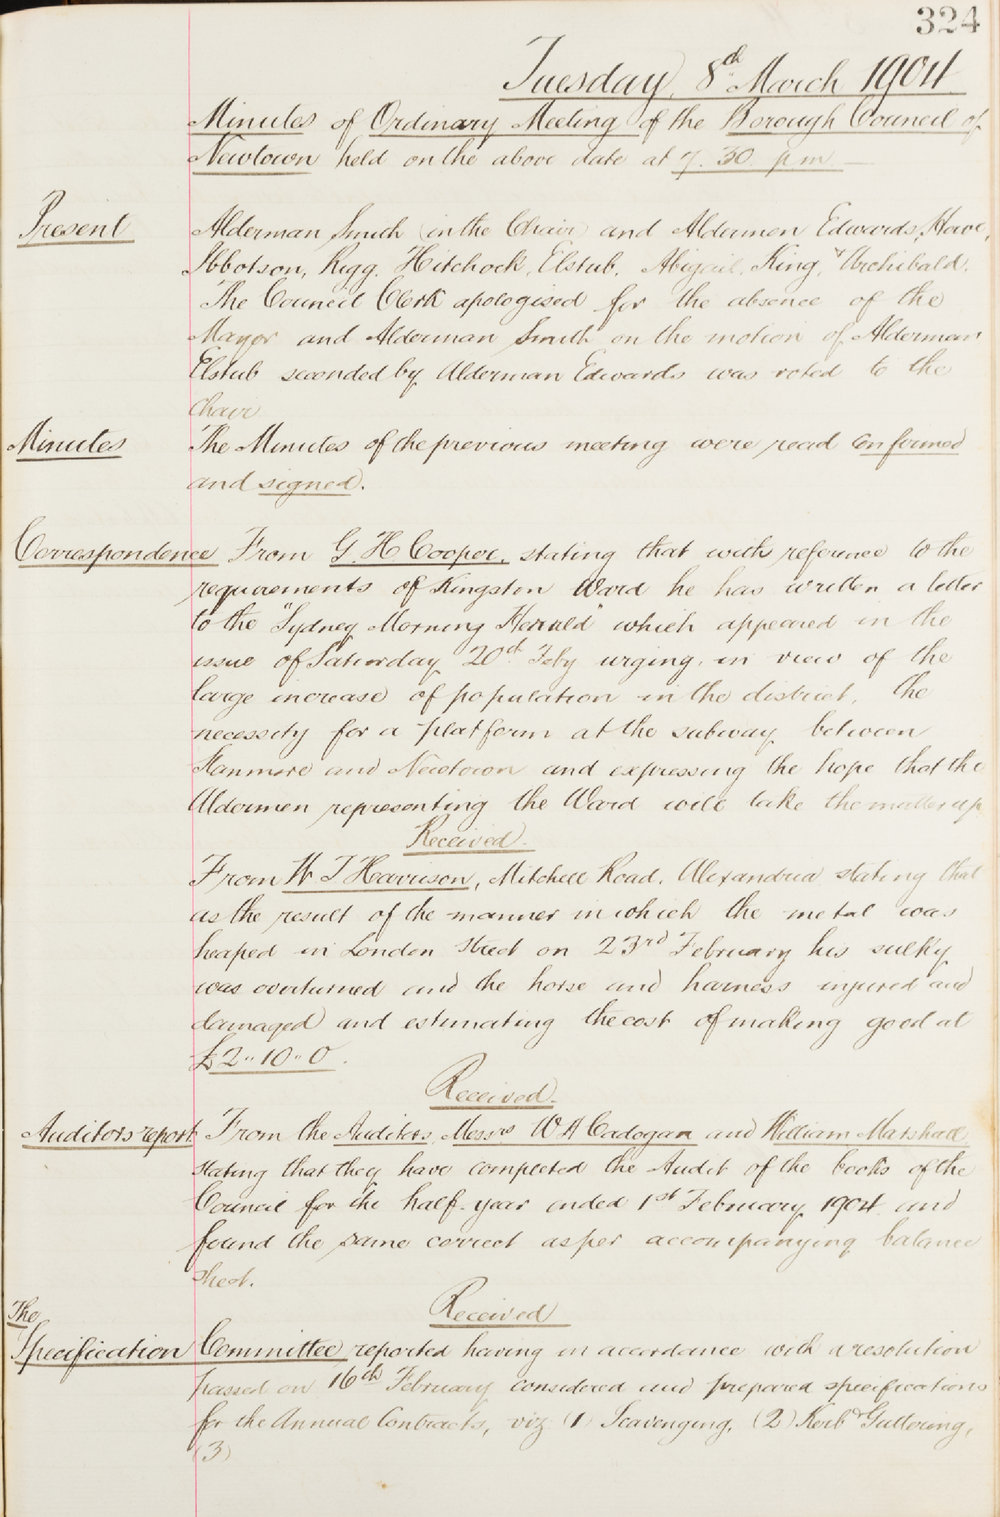 324
Tuesday 8th March 1904
Minutes of Ordinary Meeting of the Borough Council of
Newtown held on the above date at 7.30 p m
Present
Alderman Smith (in the Chair) and Aldermen Edwards, Howe,
Ibbotson, Rigg, Hitchock, Elstub, Abigail, King, & Archibald.
The Council Clerk apologised for the absence of the
Mayor and Alderman Smith on the motion of Alderman
Elstub seconded by Alderman Edwards was voted to the
Chair
Minutes
The Minutes of the previous meeting were read confirmed
and signed.
Correspondence From G. H Cooper, stating that with reference to the
requirements of Kingston Ward he has written a letter
to the "Sydney Morning Herald" which appeared in the
issue of Saturday 20th Feby urging, in view of the
large increase of population in the district, the
necessity for a platform at the subway between
Stanmore and Newtown and expressing the hope that the
Aldermen representing the Ward will take the matter up
Received
From W J Harrison, Mitchell Road, Alexandria stating that
as the result of the manner in which the metal was
heaped in London Street on 23rd February his sulky
was overturned and the horse and harness injured and
damaged and estimating the cost of making good at
£2..10..0.
Received.
Auditors report From the Auditors, Messrs W A Cadogan and William Marshall,
stating that they have completed the Audit of the books of the
Council for the half-year ended 1st February 1904 and
found the same correct as per accompanying balance
sheet.
Received
The
Specification Committee reported having in accordance with a resolution
passed on 16th February considered and prepared specifications
for the Annual Contracts, viz (1) Scavenging, (2) Kerb & Guttering,
(3)